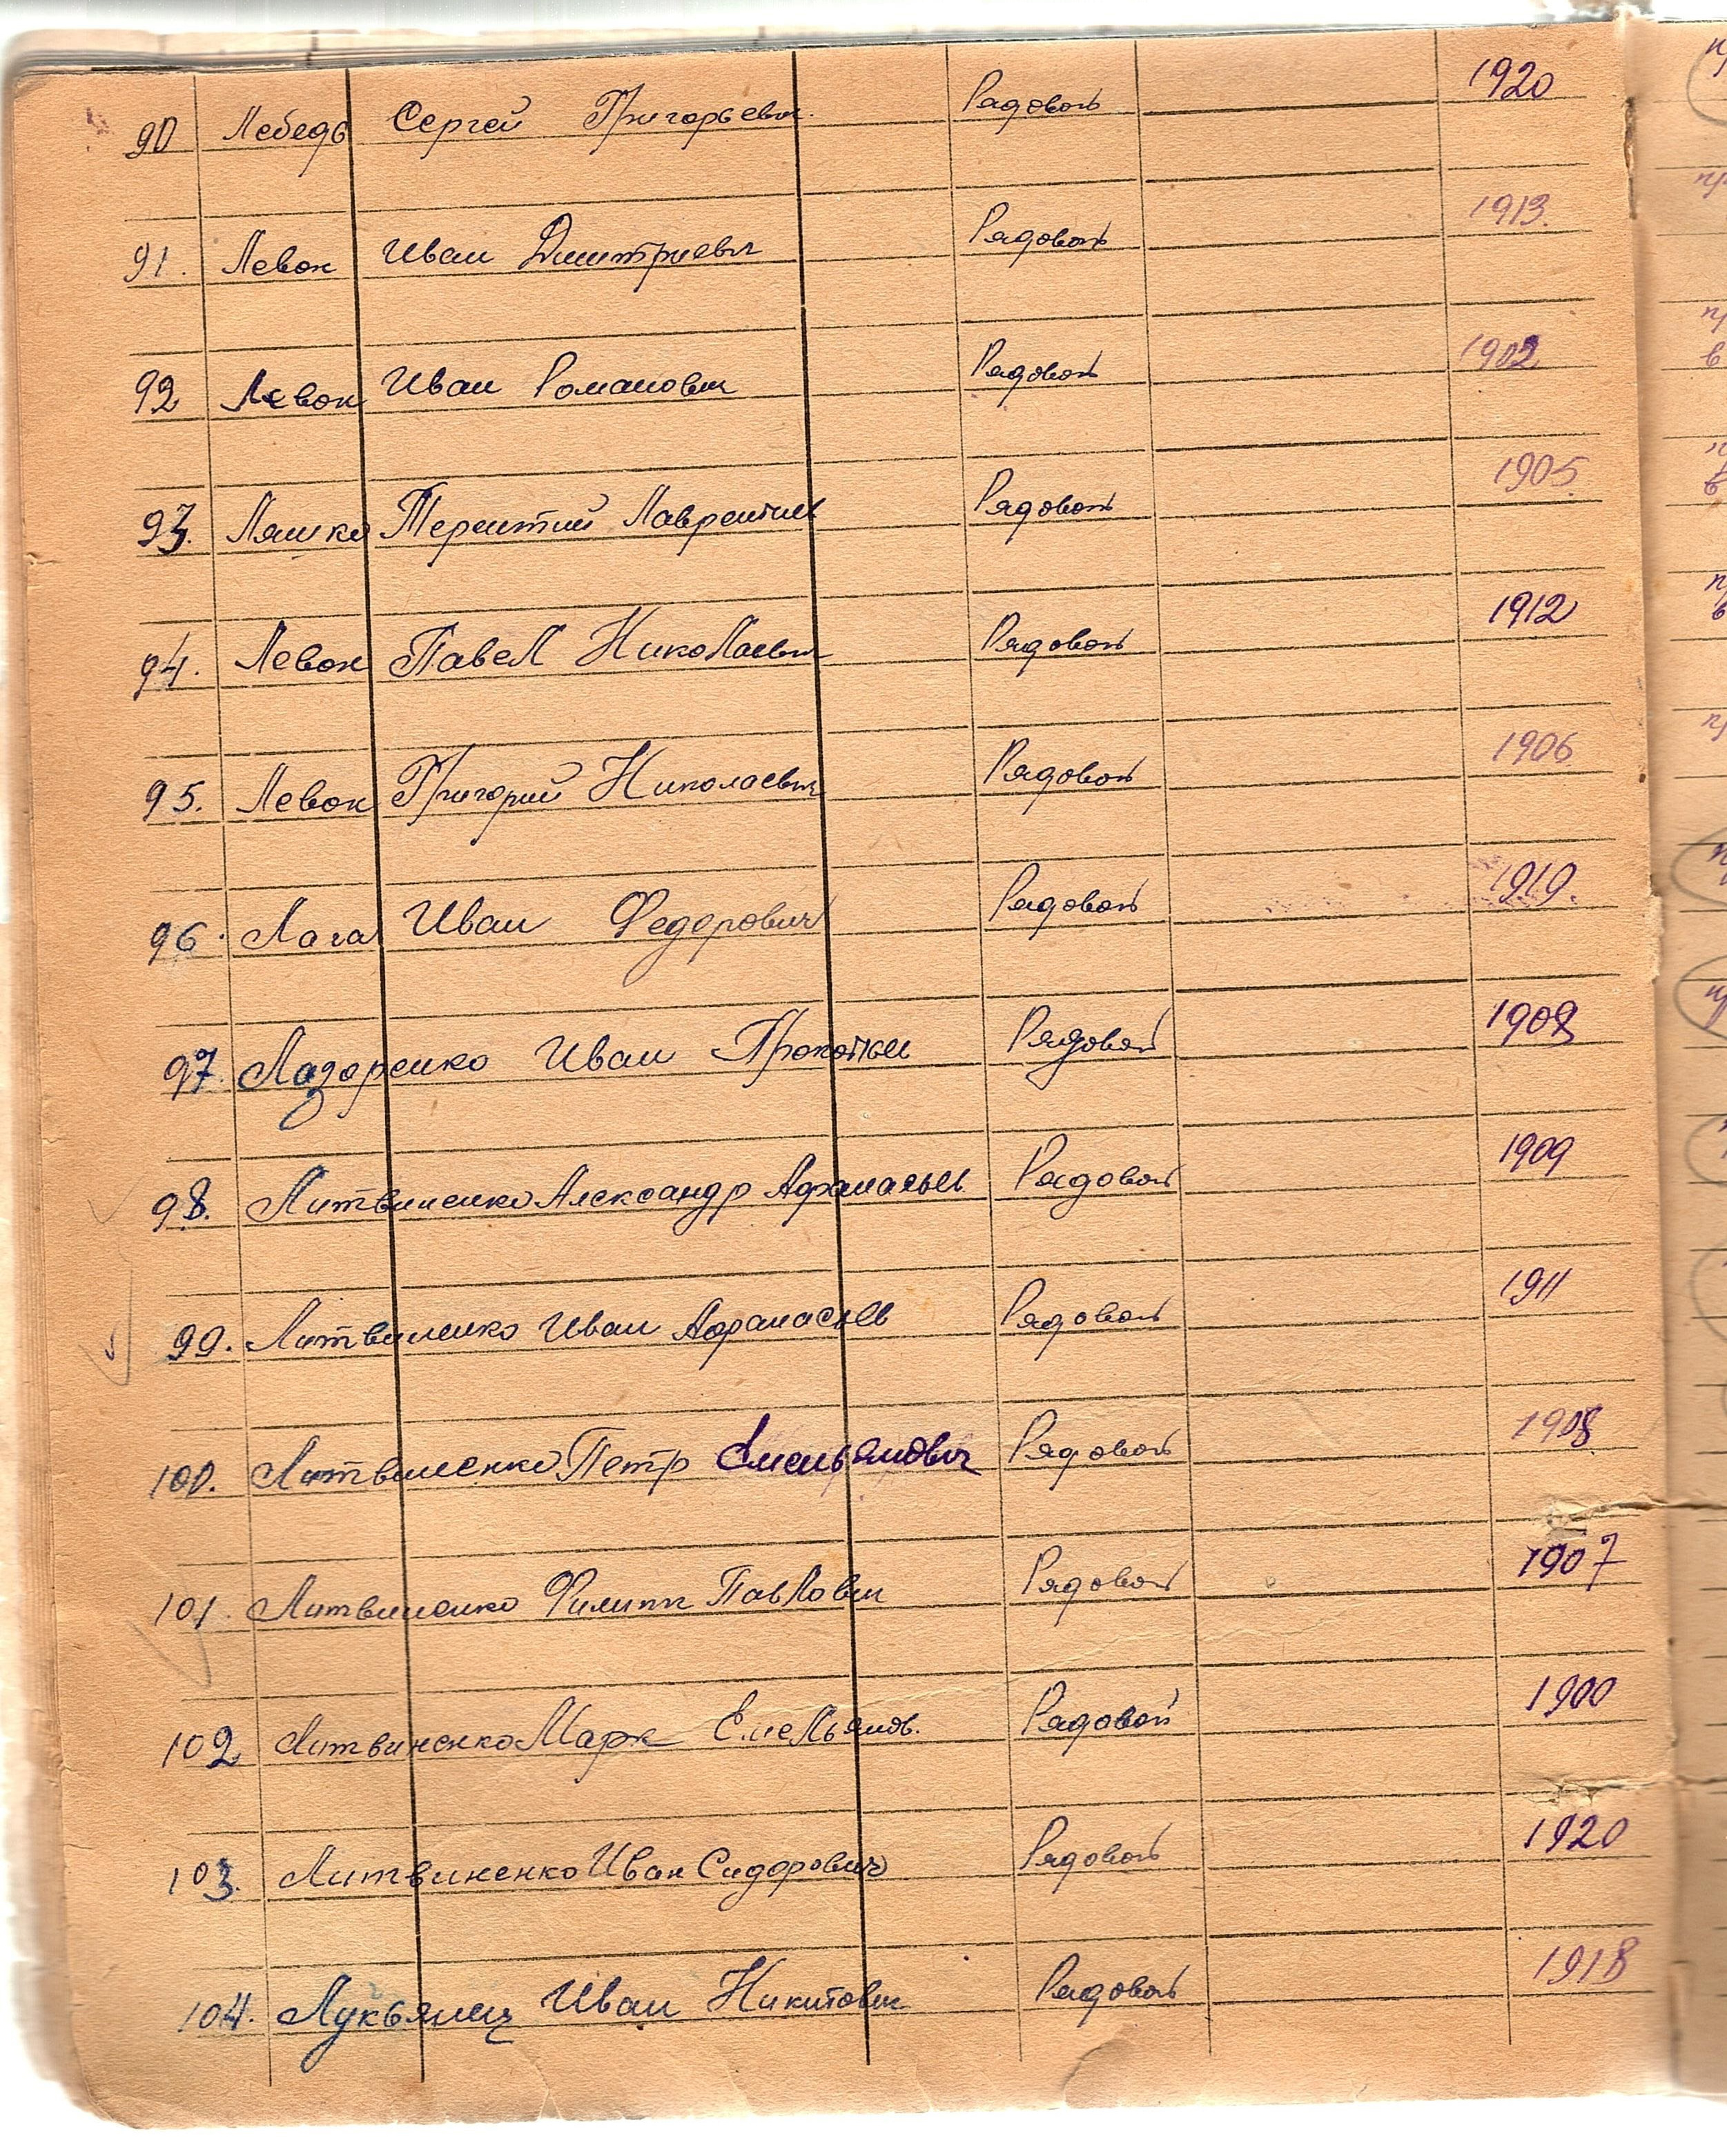 90 Лебедь Сергей Григорьевич Рядовой 1920
91. Левон Иван Дмитриевич Рядовой 1913.
92 Левон Иван Романович Рядовой 1902
93. Ляшко Терентий Лаврентие Рядовой 1905
94. Левон Павел Николаевич Рядовой 1912
95. Левон Григорий Николаевич Рядовой 1906
96. Лага Иван Федорович Рядовой 1919.
97. Лазаренко Иван Прокопье Рядовой 1908
98. Литвиненко Александр Афанасьев Рядовой 1909
99. Литвиненко Иван Афанасьев Рядовой 1911
100. Литвиненко Петр Емельянович Рядовой 1908
101. Литвиненко Филипп Павлович Рядовой 1907
102 Литвиненко Марк Емельянов. Рядовой 1900
103. Литвиненко Иван Сидорович Рядовой 1920
104. Лукьянец Иван Никитович Рядовой 1918